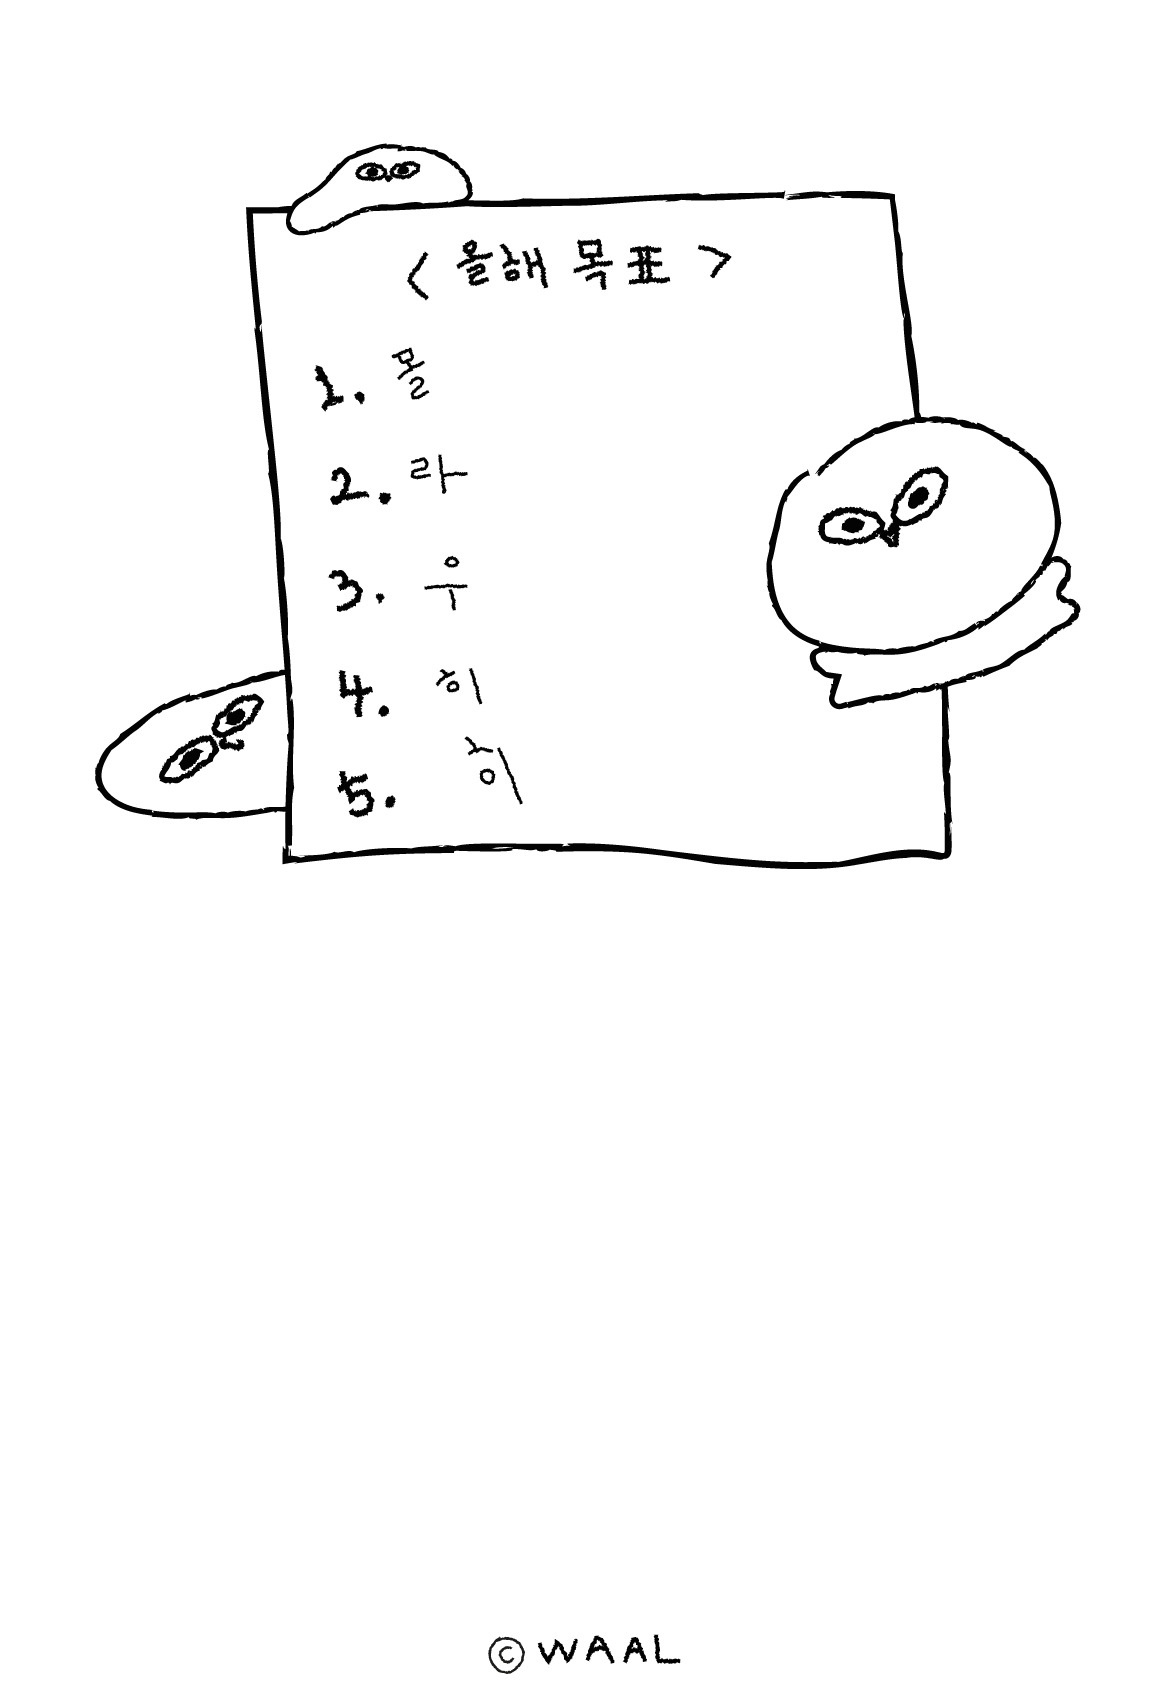 < 올해 목표 >
1. 몰
2. 라
3. 우
4. 히
5. 히
© WAAL